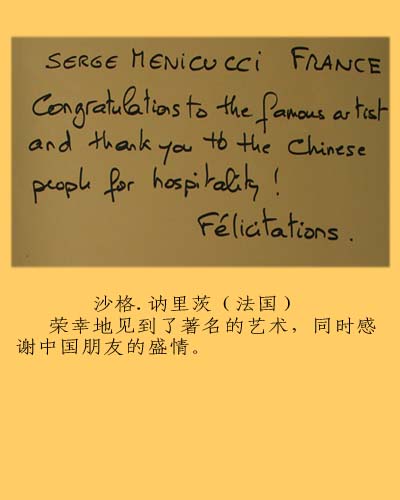 SERGE MENICUCCI FRANCE
Congratulations to the famous artist
and thank you to the Chinese
people for hospitality !
Félicitations.
沙格.讷里茨（法国）
荣幸地见到了著名的艺术，同时感
谢中国朋友的盛情。